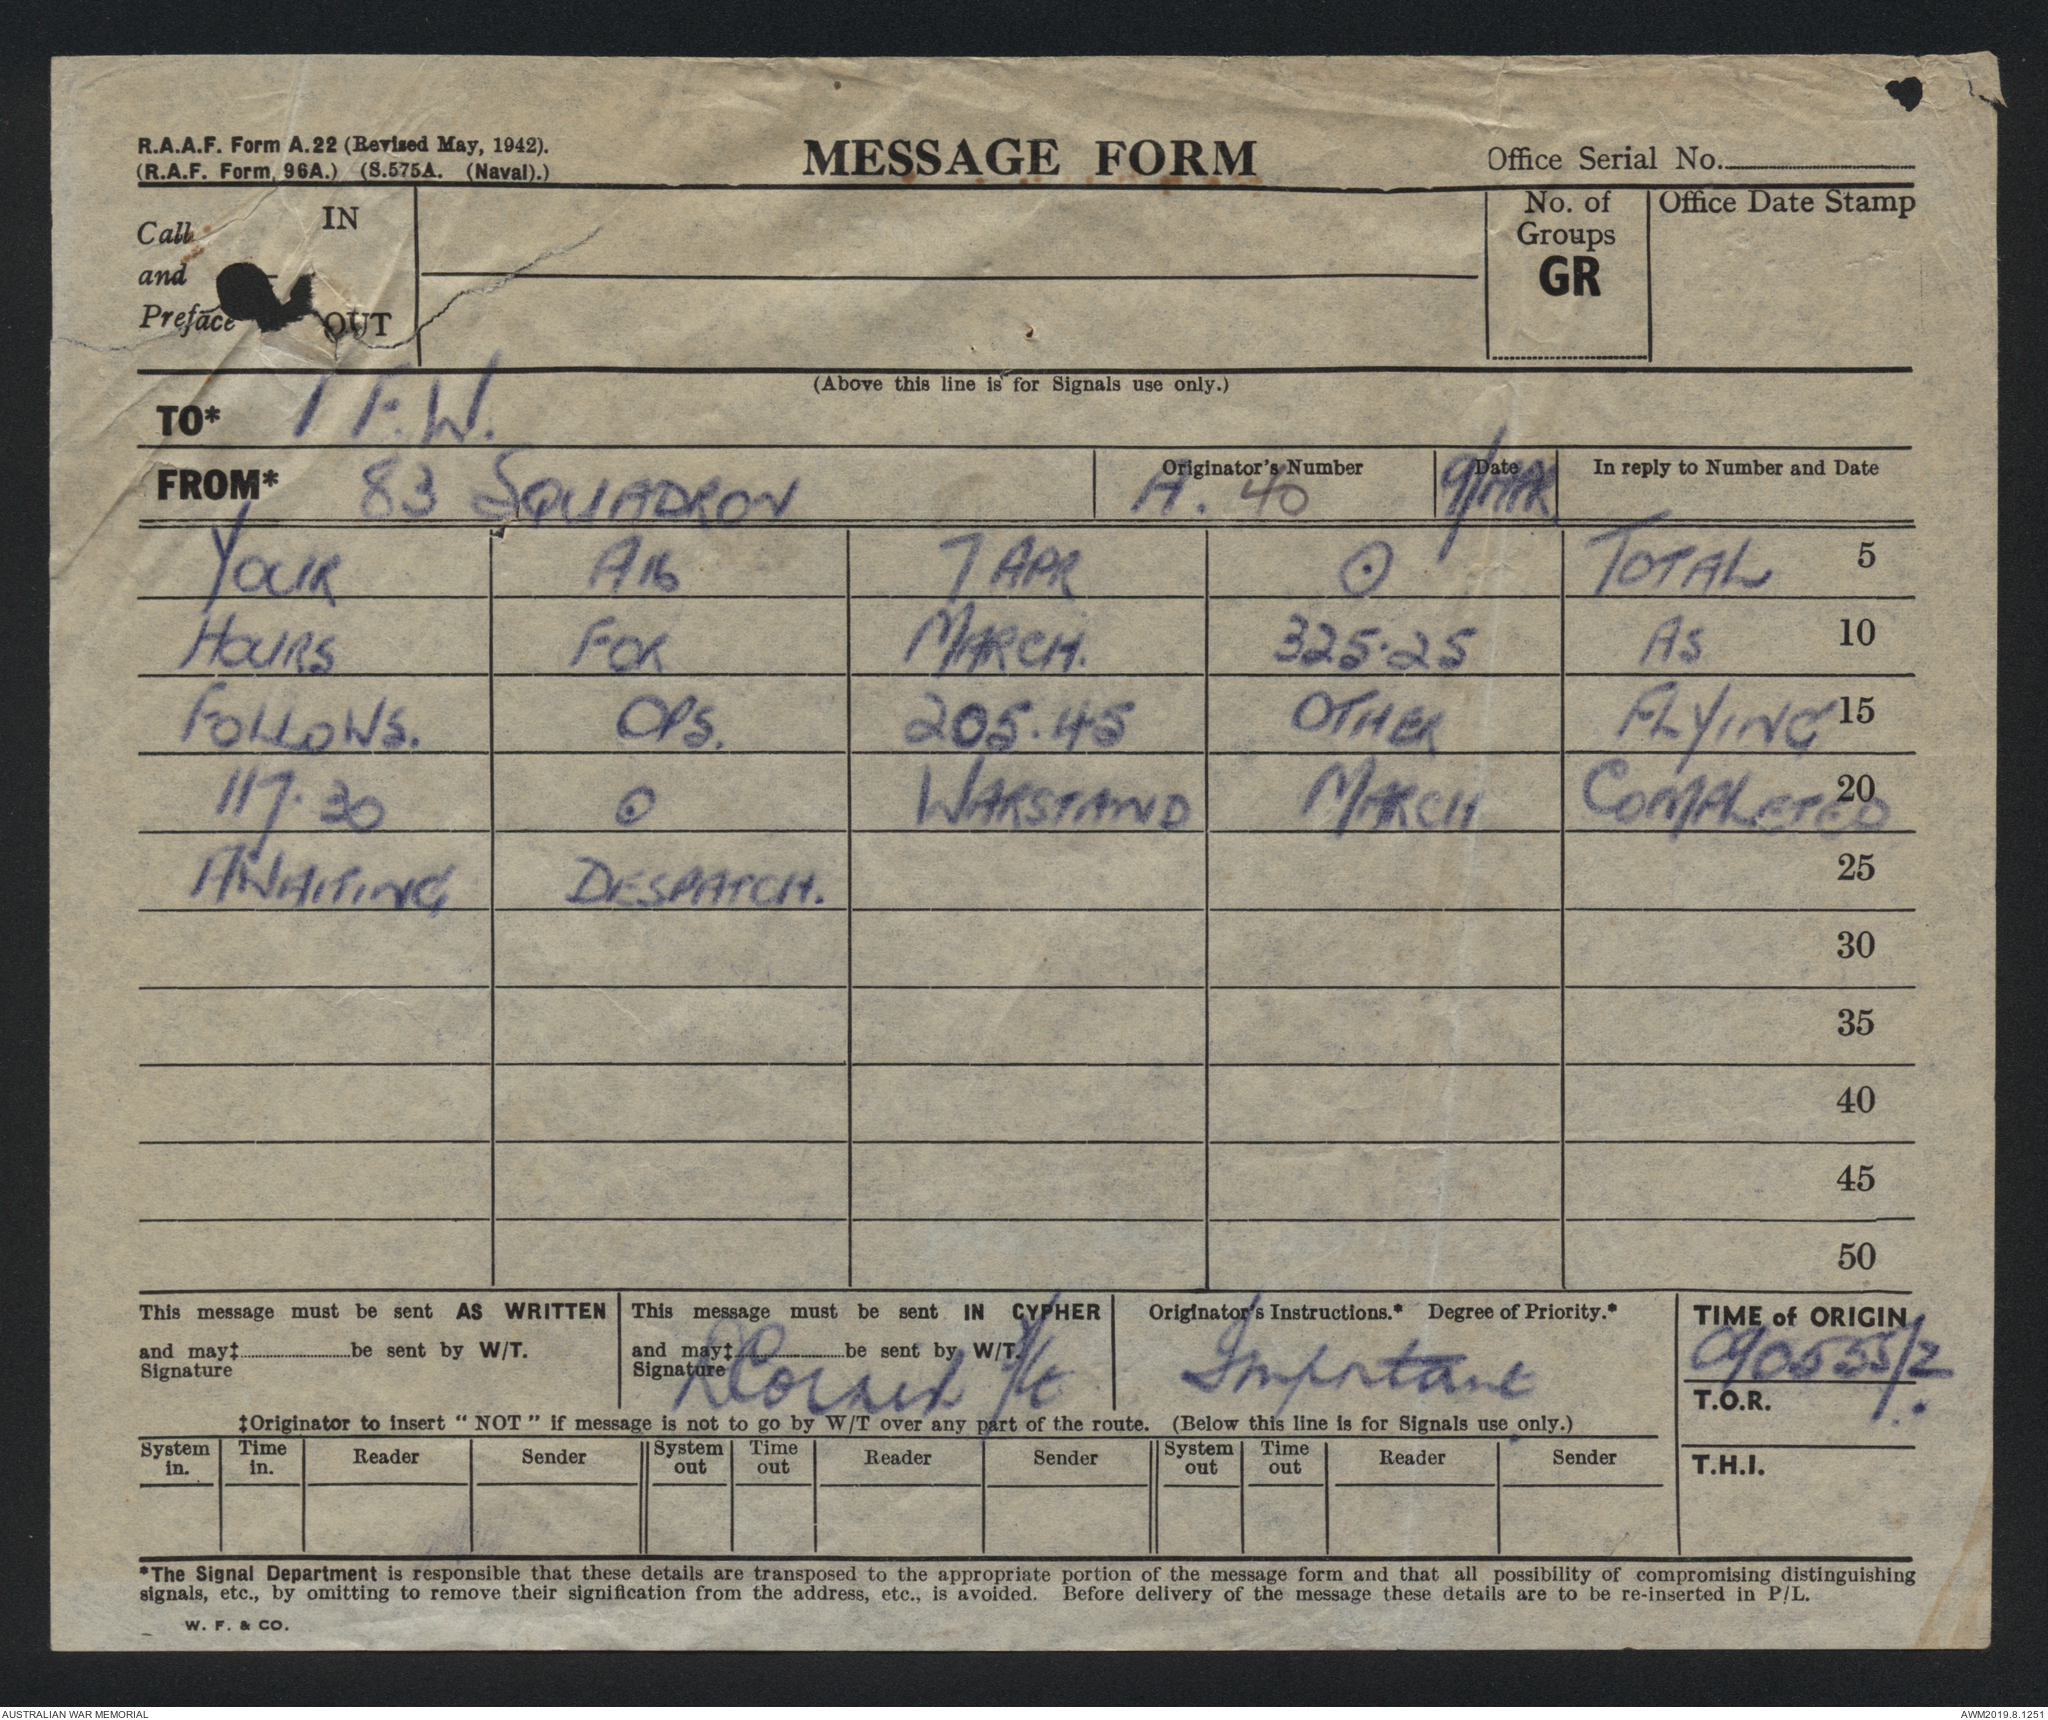 R.A.A.F. Form A.22 (Revised May, 1942).
(R.A.F. Form 96A.) (S.575A. (Naval).)
MESSAGE FORM
Office Serial No.
Call and Preface
IN
OUT
No. of Groups GR
Office Date Stamp
(Above this line is for Signals use only.)
TO* 1 F.W.
FROM* 83 SQUADRON
Originator's Number A. 40
Date 9/APR
In reply to Number and Date
YOUR A16 7 APR ⊙ TOTAL 5
HOURS FOR MARCH. 325·25 AS 10
FOLLOWS. OPS. 205·45 OTHER FLYING 15
117·30 ⊙ WARSTAND MARCH COMPLETED 20
AWAITING DESPATCH. 25
30
35
40
45
50
This message must be sent AS WRITTEN
and may‡ be sent by W/T.
Signature
This message must be sent IN CYPHER
and may‡ be sent by W/T.
Signature F/Lt
Originator's Instructions.* Degree of Priority.*
Important
TIME of ORIGIN
090555/Z
T.O.R.
T.H.I.
‡Originator to insert "NOT" if message is not to go by W/T over any part of the route. (Below this line is for Signals use only.)
System in. Time in. Reader Sender System out Time out Reader Sender System out Time out Reader Sender
*The Signal Department is responsible that these details are transposed to the appropriate portion of the message form and that all possibility of compromising distinguishing
signals, etc., by omitting to remove their signification from the address, etc., is avoided. Before delivery of the message these details are to be re-inserted in P/L.
W. F. & CO.
AUSTRALIAN WAR MEMORIAL
AWM2019.8.1251